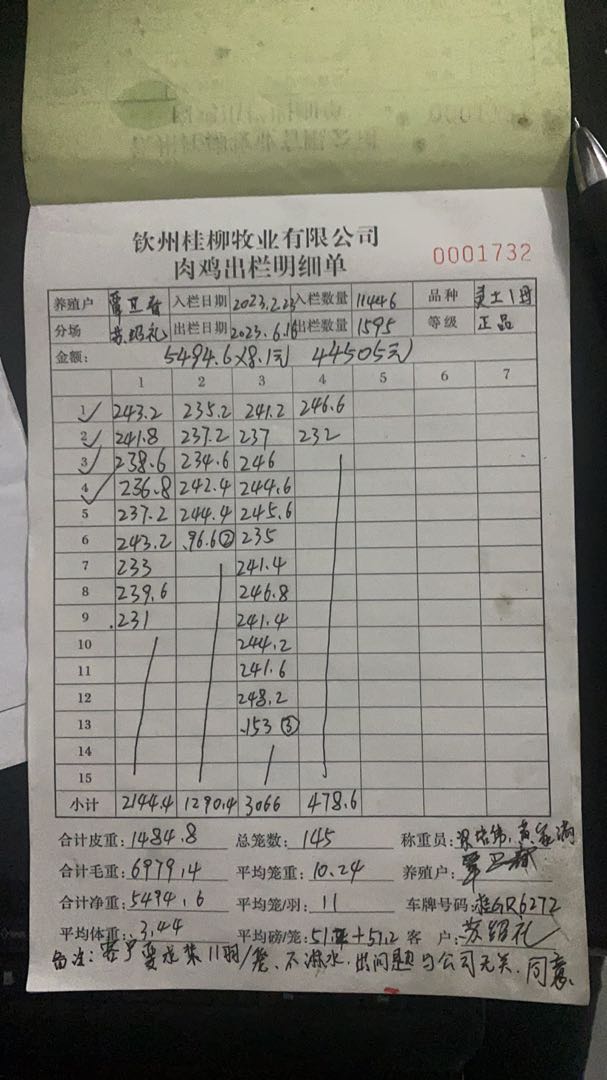 钦州桂柳牧业有限公司
肉鸡出栏明细单
0001732
养殖户 入栏日期 2023.2.23 入栏数量 11446 品种 灵土1号
分场 苏绍礼 出栏日期 2023.6.16 出栏数量 1595 等级 正品
金额: 5494.6×8.1元 44505元
1 2 3 4 5 6 7
1 243.2 235.2 241.2 246.6
2 241.8 237.2 237 232
3 238.6 234.6 246
4 236.8 242.4 244.6
5 237.2 244.4 245.6
6 243.2 .96.6② 235
7 233 241.4
8 239.6 246.8
9 .231 241.4
10 244.2
11 241.6
12 248.2
13 .153③
14
15
小计 2144.4 1290.4 3066 478.6
合计皮重: 1484.8 总笼数: 145 称重员:
合计毛重: 6979.4 平均笼重: 10.24 养殖户:
合计净重: 5494.6 平均笼/羽: 11 车牌号码: 桂GR6272
平均体重: 3.44 平均磅/笼: 客户: 苏绍礼
备注: 客户要求装11羽/笼、不淋水.出问题与公司无关.同意.